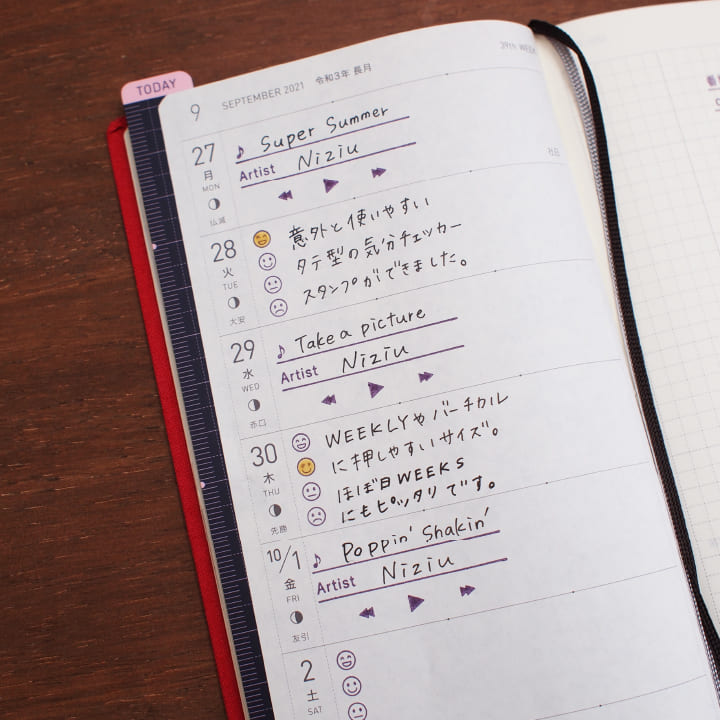 TODAY
9 SEPTEMBER 2021 令和3年 長月
39th WEEK
27
月
MON
仏滅
♪ Super Summer
Artist NiziU
28
火
TUE
大安
意外と使いやすい
タテ型の気分チェッカー
スタンプができました。
29
水
WED
赤口
♪ Take a picture
Artist NiziU
30
木
THU
先勝
WEEKLYやバーチカル
に押しやすいサイズ。
ほぼ日WEEKS
にもピッタリです。
10/1
金
FRI
友引
♪ Poppin' Shakin'
Artist NiziU
2
土
SAT